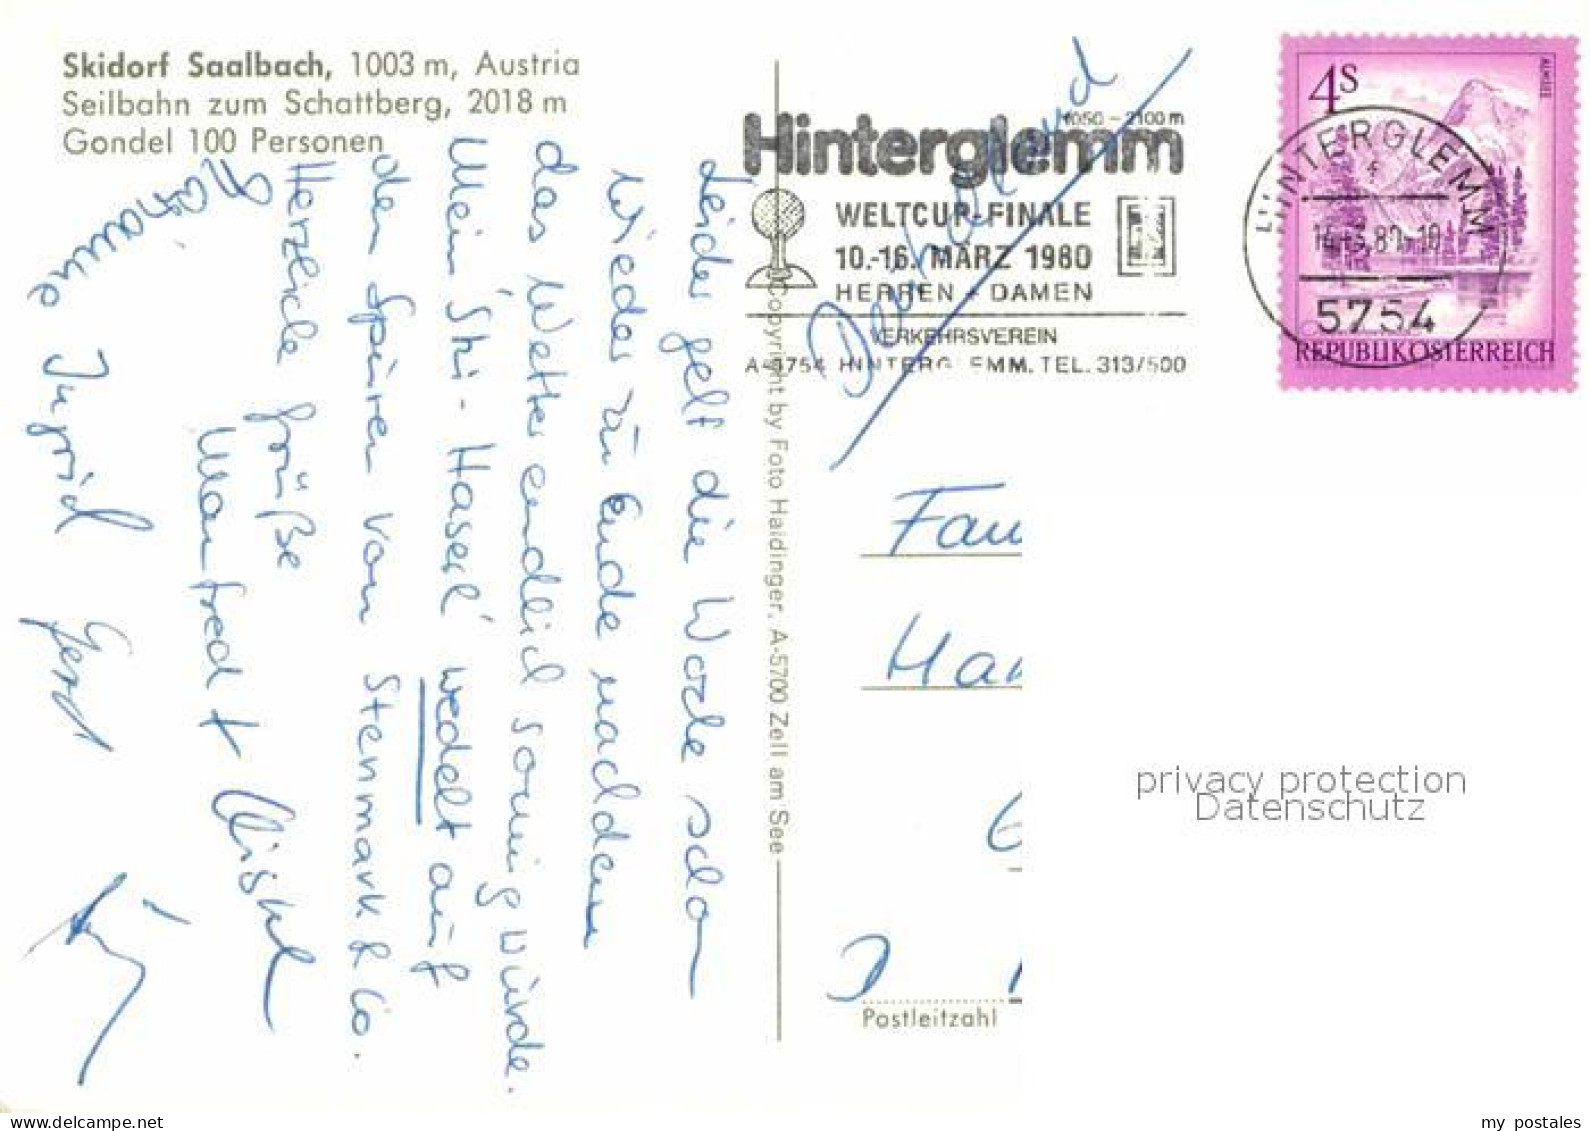 Skidorf Saalbach, 1003 m, Austria
Seilbahn zum Schattberg, 2018 m
Gondel 100 Personen
Leider geht die Woche schon
wieder zu Ende nachdem
das Wetter endlich sonnig würde.
Mein 'Ski-Haserl' wedelt auf
den Spuren von Stenmark & Co.
Herzliche Grüße
Manfred +
Ingrid
Gerd
Copyright by Foto Haidinger, A-5700 Zell am See
1050 - 2100 m
Hinterglemm
WELTCUP-FINALE
10.-16. MÄRZ 1980
HERREN + DAMEN
VERKEHRSVEREIN
A-5754 HINTERGLEMM. TEL. 313/500
4S
ALMSEE
HINTERGLEMM
14.-3.80-10
5754
REPUBLIK ÖSTERREICH
Deutschland
Fam
Han
D
Postleitzahl
privacy protection
Datenschutz
my postales